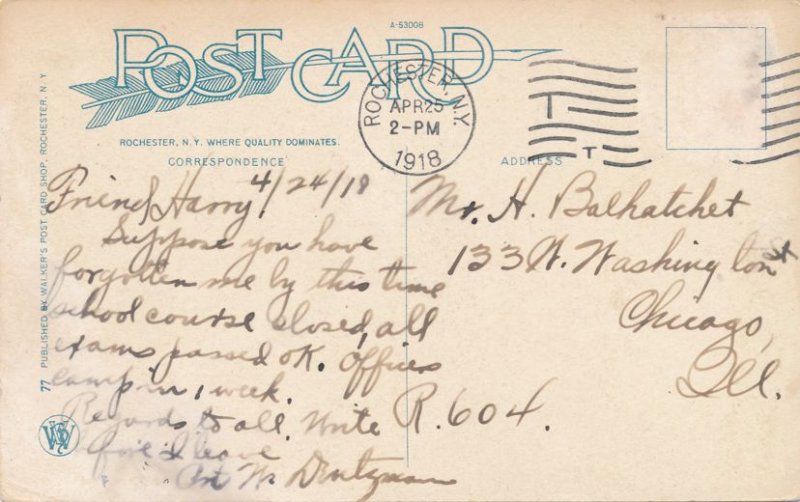 A-5300B
POST CARD
ROCHESTER, N.Y. WHERE QUALITY DOMINATES.
CORRESPONDENCE
ADDRESS
ROCHESTER, N.Y.
APR 25
2-PM
1918
77 PUBLISHED BY WALKER'S POST CARD SHOP, ROCHESTER, N.Y.
4/24/18
Friend Harry
Suppose you have
forgotten me by this time
school course closed, all
exams passed OK. Officers
camp in 1 week.
Regards to all. Write
fore I leave
Art W.
Mr. H. Balhatchet
133 W. Washington St
Chicago,
Ill.
R. 604.